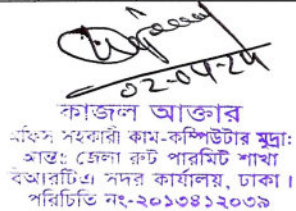 02-04-24
কাজল আক্তার
অফিস সহকারী কাম-কম্পিউটার মুদ্রা:
আন্ত: জেলা রুট পারমিট শাখা
বিআরটিএ সদর কার্যালয়, ঢাকা।
পরিচিতি নং-২০১৩৪১২০৩৯